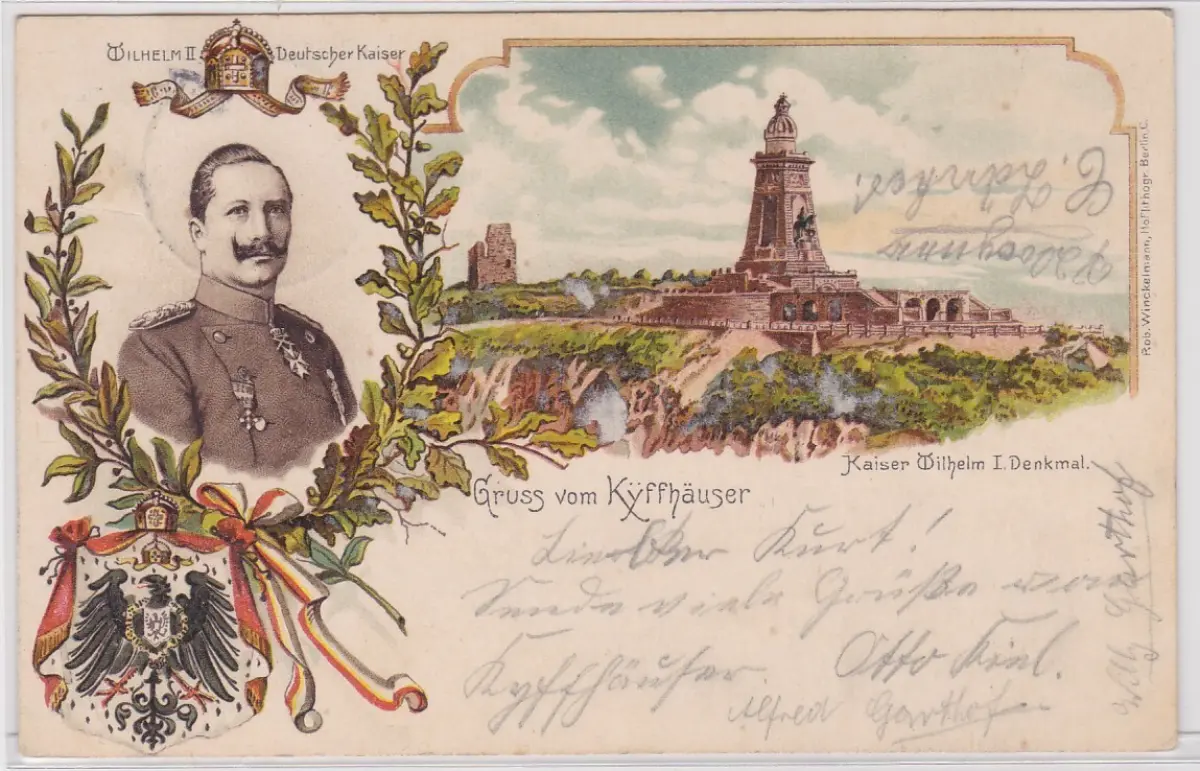 WILHELM II. Deutscher Kaiser
Rob. Winckelmann, Hoflithogr. Berlin C.
Kaiser Wilhelm I. Denkmal.
Gruss vom Kÿffhäuser
Lieber Kurt!
Sende viele Grüße vom
Kyffhäuser. Otto Kiel.
Alfred Garthof
Willy Garthof